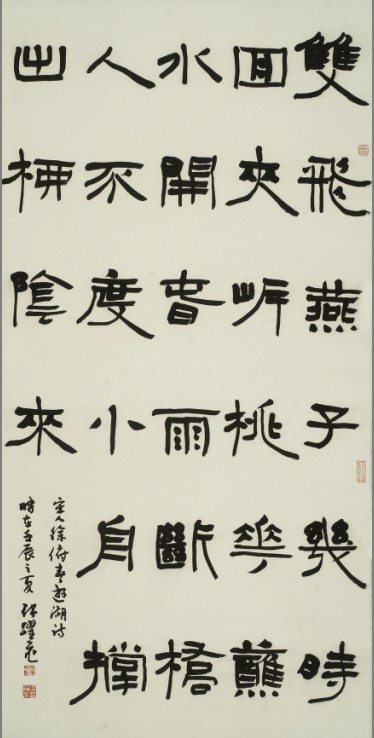 雙飛燕子幾時
回夾岸桃華蘸
水開春雨斷橋
人不度小舟撐
出柳陰來
宋人徐俯春遊湖詩
時在壬辰之夏